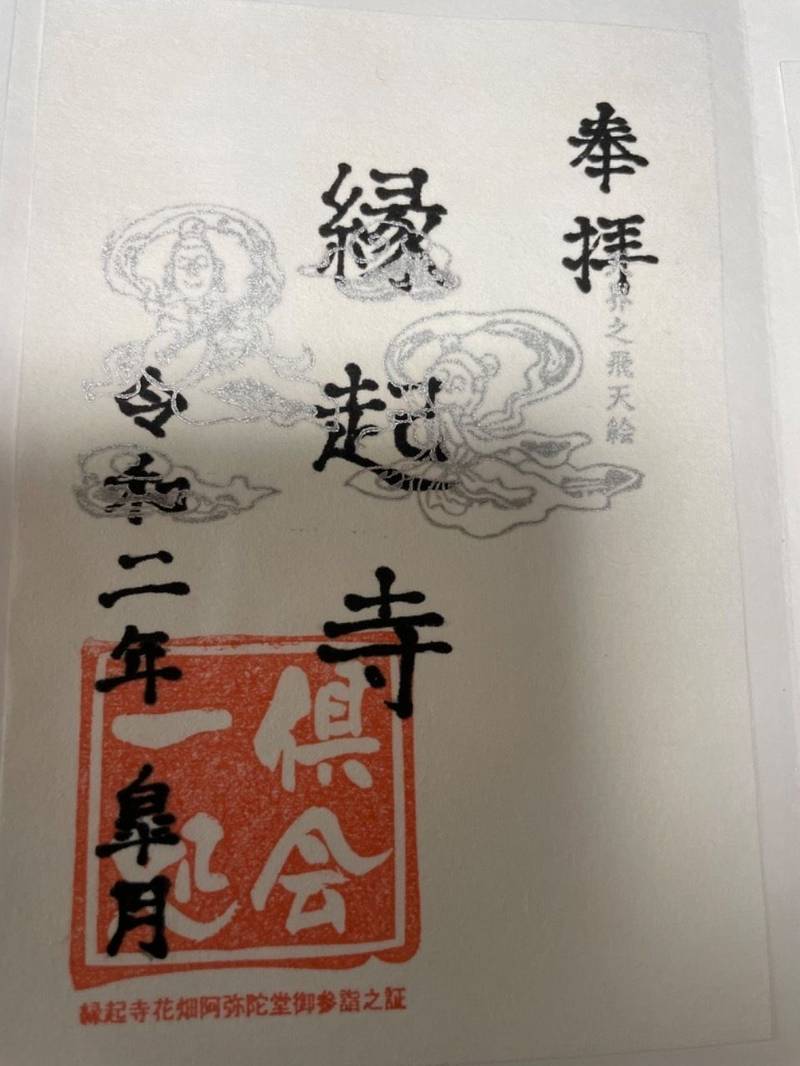 奉拝
界之飛天絵
縁起寺
令和二年皐月
倶会
一処
縁起寺花畑阿弥陀堂御参詣之証